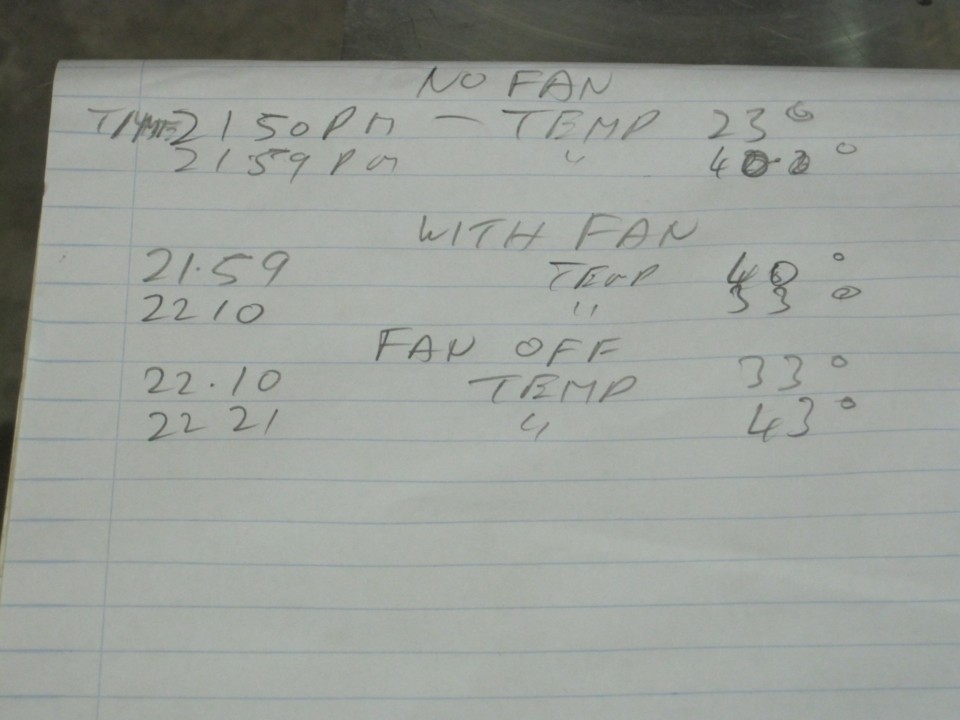 NO FAN
TIME 2150 PM — TEMP 23°
2159 PM " 40°
WITH FAN
21.59 TEMP 40°
22 10 " 33°
FAN OFF
22.10 TEMP 33°
22 21 " 43°